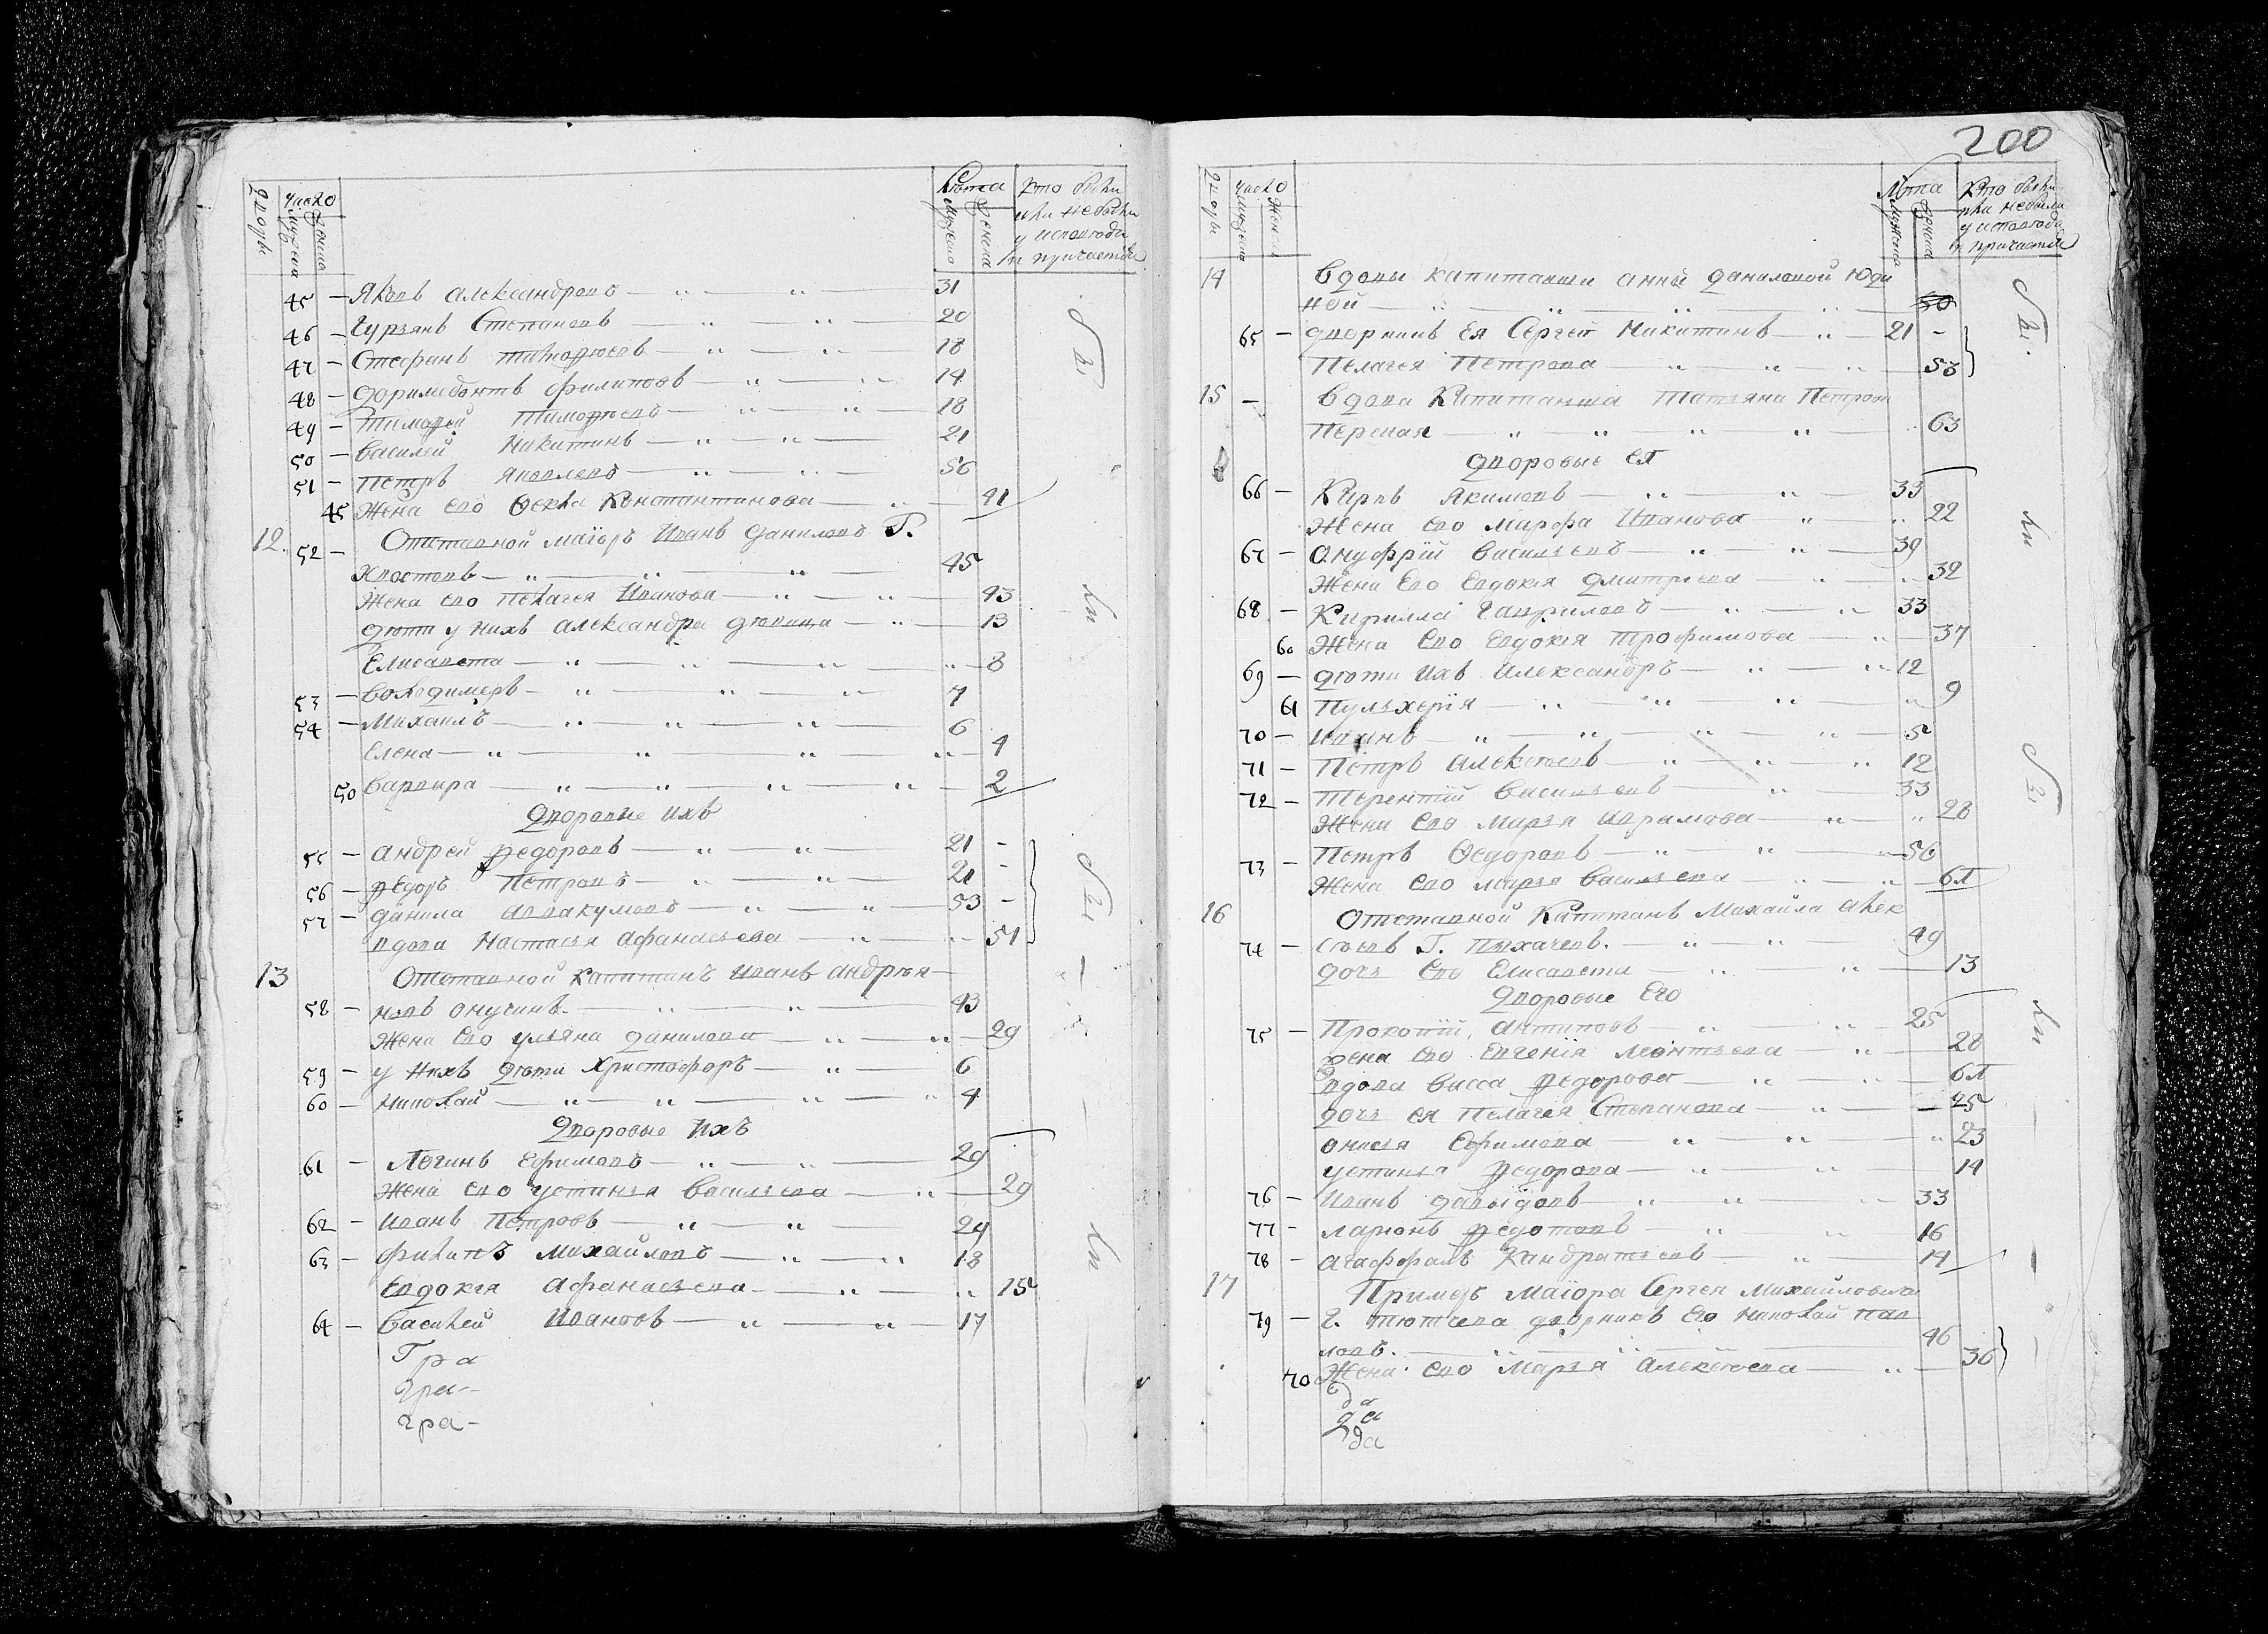 Число
Лѣта
Кто были
или не были
у исповѣди
и причастія
45 — Яковъ Александровъ — 31
46 — Гурьянъ Степановъ — 20
47 — Стефанъ — 18
48 — Доримедонтъ Филиповъ — 14
49 — Тимофей Тимофѣевъ — 18
50 — Василей Никитинъ — 21
51 — Петръ Яковлевъ — 56
45 Жена ево Ѳекла Константинова — 41
12. 52 — Отставной маіоръ Иванъ Даниловъ Г.
Хвостовъ — 45
Жена ево Пелагея Иванова — 43
Дѣти у нихъ Александра девица — 13
Елисавета — 8
53 — Володимеръ — 7
54 — Михаилъ — 6
Елена — 4
50 Варвара — 2
Дворовые ихъ
55 — Андрей Федоровъ — 21 -
56 — Федоръ Петровъ — 21 -
57 — Данила Аввакумовъ — 53 -
вдова Настасья Афанасьева — 51
13 Отставной Капитанъ Иванъ Андрѣя-
58 — новъ Онучинъ. — 43
Жена ево Ульяна Данилова — 29
59 — у нихъ дѣти Христофоръ — 6
60 — Николай — 4
Дворовые ихъ
61 — Логинъ Ефимовъ — 29
Жена ево Устинья Васильева — 29
62 — Иванъ Петровъ — 24
63 — Филипъ Михайловъ — 18
Евдокея Афанасьева — 15
64 — Василей Ивановъ — 17
Гра
гра-
гра-
200
Число
Лѣта
Кто были
или небыли
у исповѣди
и причастія
14 Вдовы капитанши Анны Даниловой Юди
ной — 50
65 — Дворникъ ея Сергей Никитинъ — 21 -
Пелагея Петрова — 53
15 — Вдова Капитанша Татьяна Петрова
— 63
Дворовые ея
66 — Карпъ Якимовъ — 33
Жена ево Марфа Иванова — 22
67 — Онуфрій Васильевъ — 39
Жена Ево Евдокея Дмитриева — 32
68 — Кирилла Гавриловъ — 33
60 Жена Ево Евдокея Трофимова — 37
69 — дѣти ихъ Александръ — 12
61 Пульхерія — 9
70 — Иванъ — 5
71 — Петръ Алексѣевъ — 12
72 — Терентій Васильевъ — 33
Жена Ево Марья Аврамова — 28
73 — Петръ Ѳедоровъ — 56
Жена Ево Марья Васильева —
16 Отставной Капитанъ Михайла Алек
74 — сѣевъ Г. Пыхачевъ. — 49
дочь Ево Елисавета — 13
Дворовые Его
75 — Прокопій Антиповъ — 25
Жена ево Евгенія Леонтьева — 28
вдова Васса Федорова —
дочь ея Пелагея Степанова — 25
Онисья Ефимова — 23
Устинья Федорова — 14
76 — Иванъ Давыдовъ — 33
77 — Ларіонъ Федотовъ — 16
78 — Агафонъ Кандратьевъ — 14
17 Примеръ Маіора Сергея Михайловича
79 — Г. Тютчева дворникъ Его Николай Пав
ловъ. — 46
70 Жена ево Марья Алексѣева — 36
да
да
да